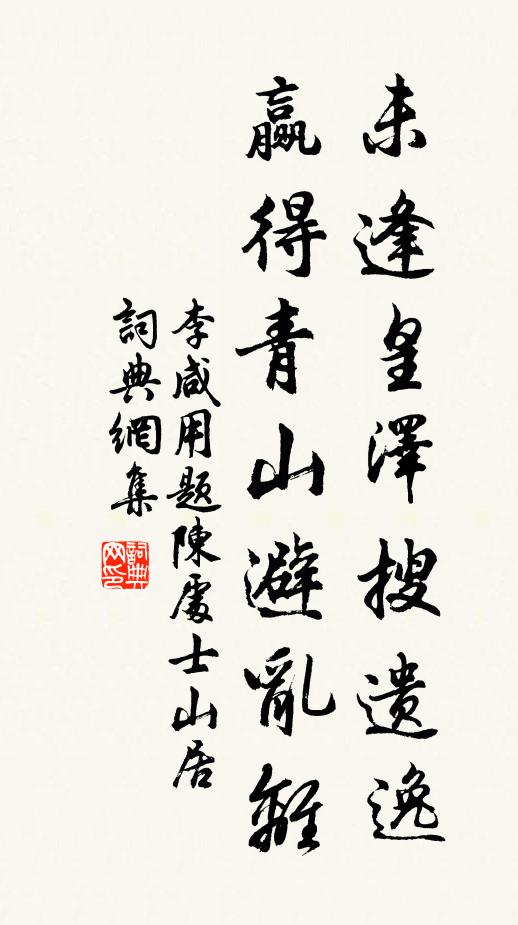 未逢皇澤搜遺逸
贏得青山避亂離
李咸用題陳處士山居
詞典網集
詞典网印